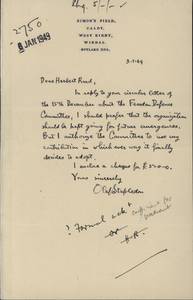 SIMON'S FIELD,
CALDY,
WEST KIRBY,
WIRRAL.
2750
8 JAN 1949
3.1.49
Dear Herbert Read,
In reply to your circular letter of
the 15th December about the Freedom Defence
Committee, I should prefer that the organisation
should be kept going for future emergencies.
But I authorise the Committee to use my
contribution in which ever way it finally
decides to adopt.
I enclose a cheque for £
Yours sincerely
Olaf Stapledon
? Formal ack +
or